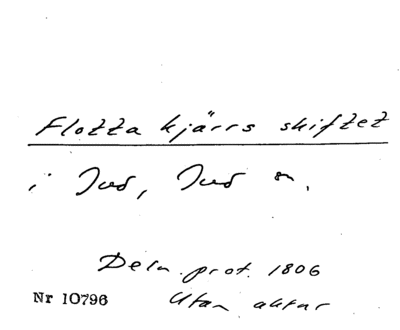 Flotta kjärrs skiftet
i Jud, Jud sn.
Deln. prot. 1806
Nr 10796 Utan aktnr